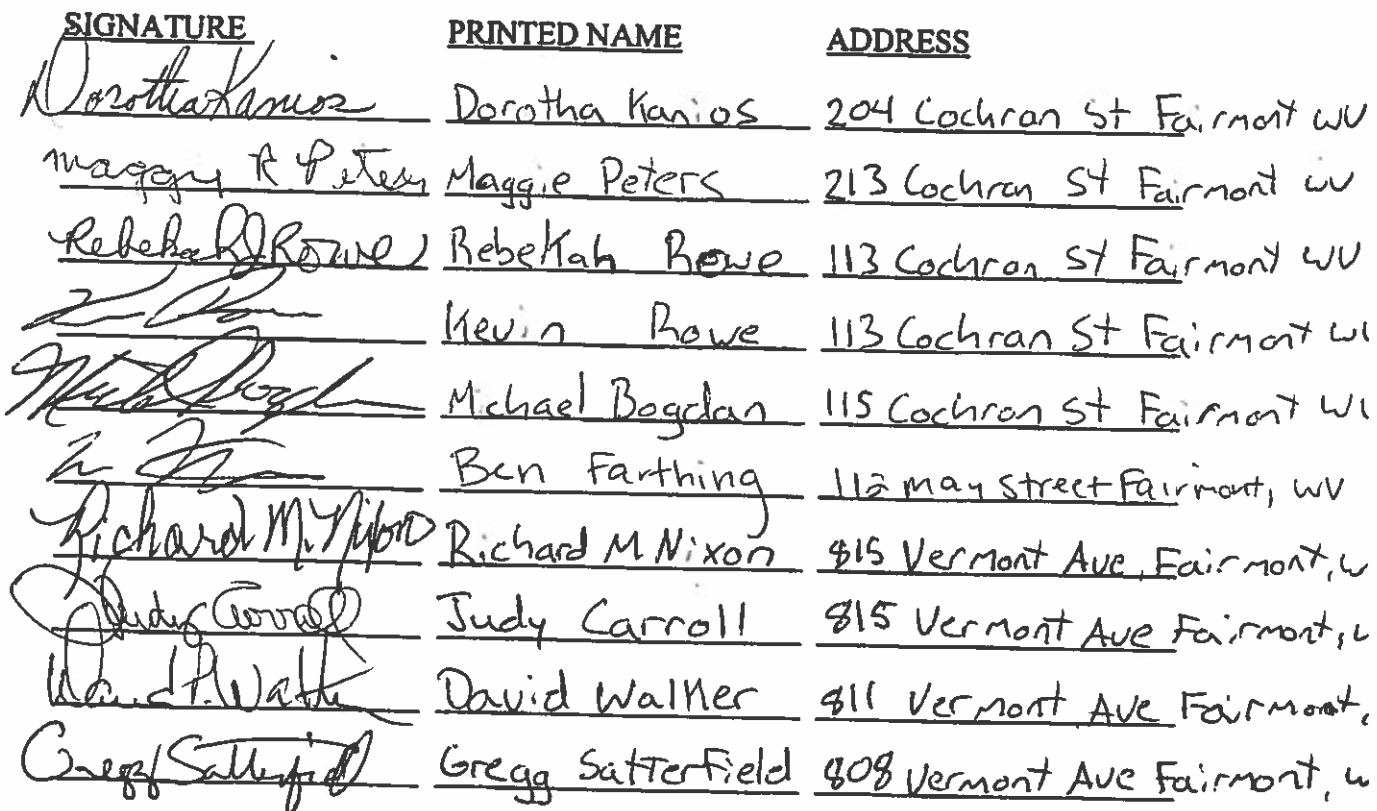 SIGNATURE PRINTED NAME ADDRESS
Dorotha Kanios Dorotha Kanios 204 Cochran St Fairmont WV
Maggie R Peters Maggie Peters 213 Cochran St Fairmont WV
Rebekah J Rowe Rebekah Rowe 113 Cochran St Fairmont WV
Kevin Rowe 113 Cochran St Fairmont W
Michael Bogdan 115 Cochran St Fairmont W
Ben Farthing 112 May Street Fairmont, WV
Richard M. Nixon Richard M Nixon 815 Vermont Ave, Fairmont, W
Judy Carroll Judy Carroll 815 Vermont Ave Fairmont,
David P. Walker David Walker 811 Vermont Ave Fairmont,
Gregg Satterfield Gregg Satterfield 808 Vermont Ave Fairmont, W